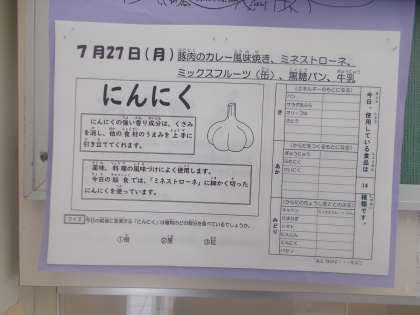 7月27日(月)豚肉のカレー風味焼き、ミネストローネ、
ミックスフルーツ(缶)、黒糖パン、牛乳
にんにく
にんにくの強い香り成分は、くさみ
を消し、他の食材のうまみを上手に
引き立ててくれます。
薬味、料理の風味づけによく使います。
今日の給食では、「ミネストローネ」に細かく切った
にんにくを使っています。
クイズ 今日の給食に登場する「にんにく」は植物のどの部分を食べているでしょうか。
①根 ②茎 ③花
今日、使用している食品は
14
種類です。
き
(エネルギーのもとになる)
パン
あか
(からだをつくるもとになる)
ぎゅうにゅう
ぶたにく
みどり
(からだのちょうしをととのえる)
キャベツ
たまねぎ
トマト
にんじん
にんにく
パセリ